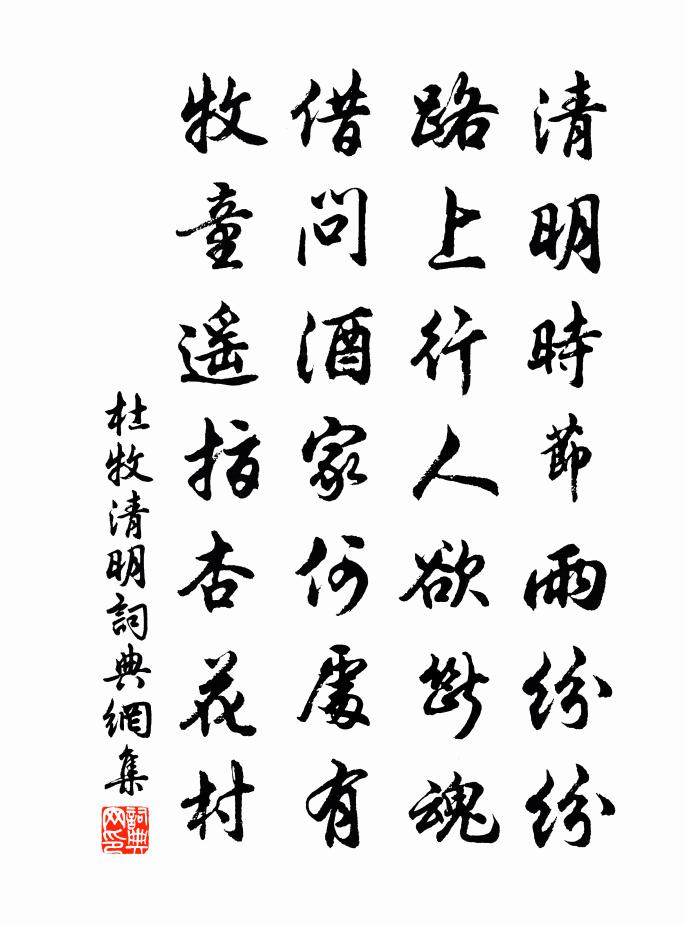 清明時節雨紛紛
路上行人欲斷魂
借問酒家何處有
牧童遥指杏花村
杜牧清明詞典網集
詞典
网印